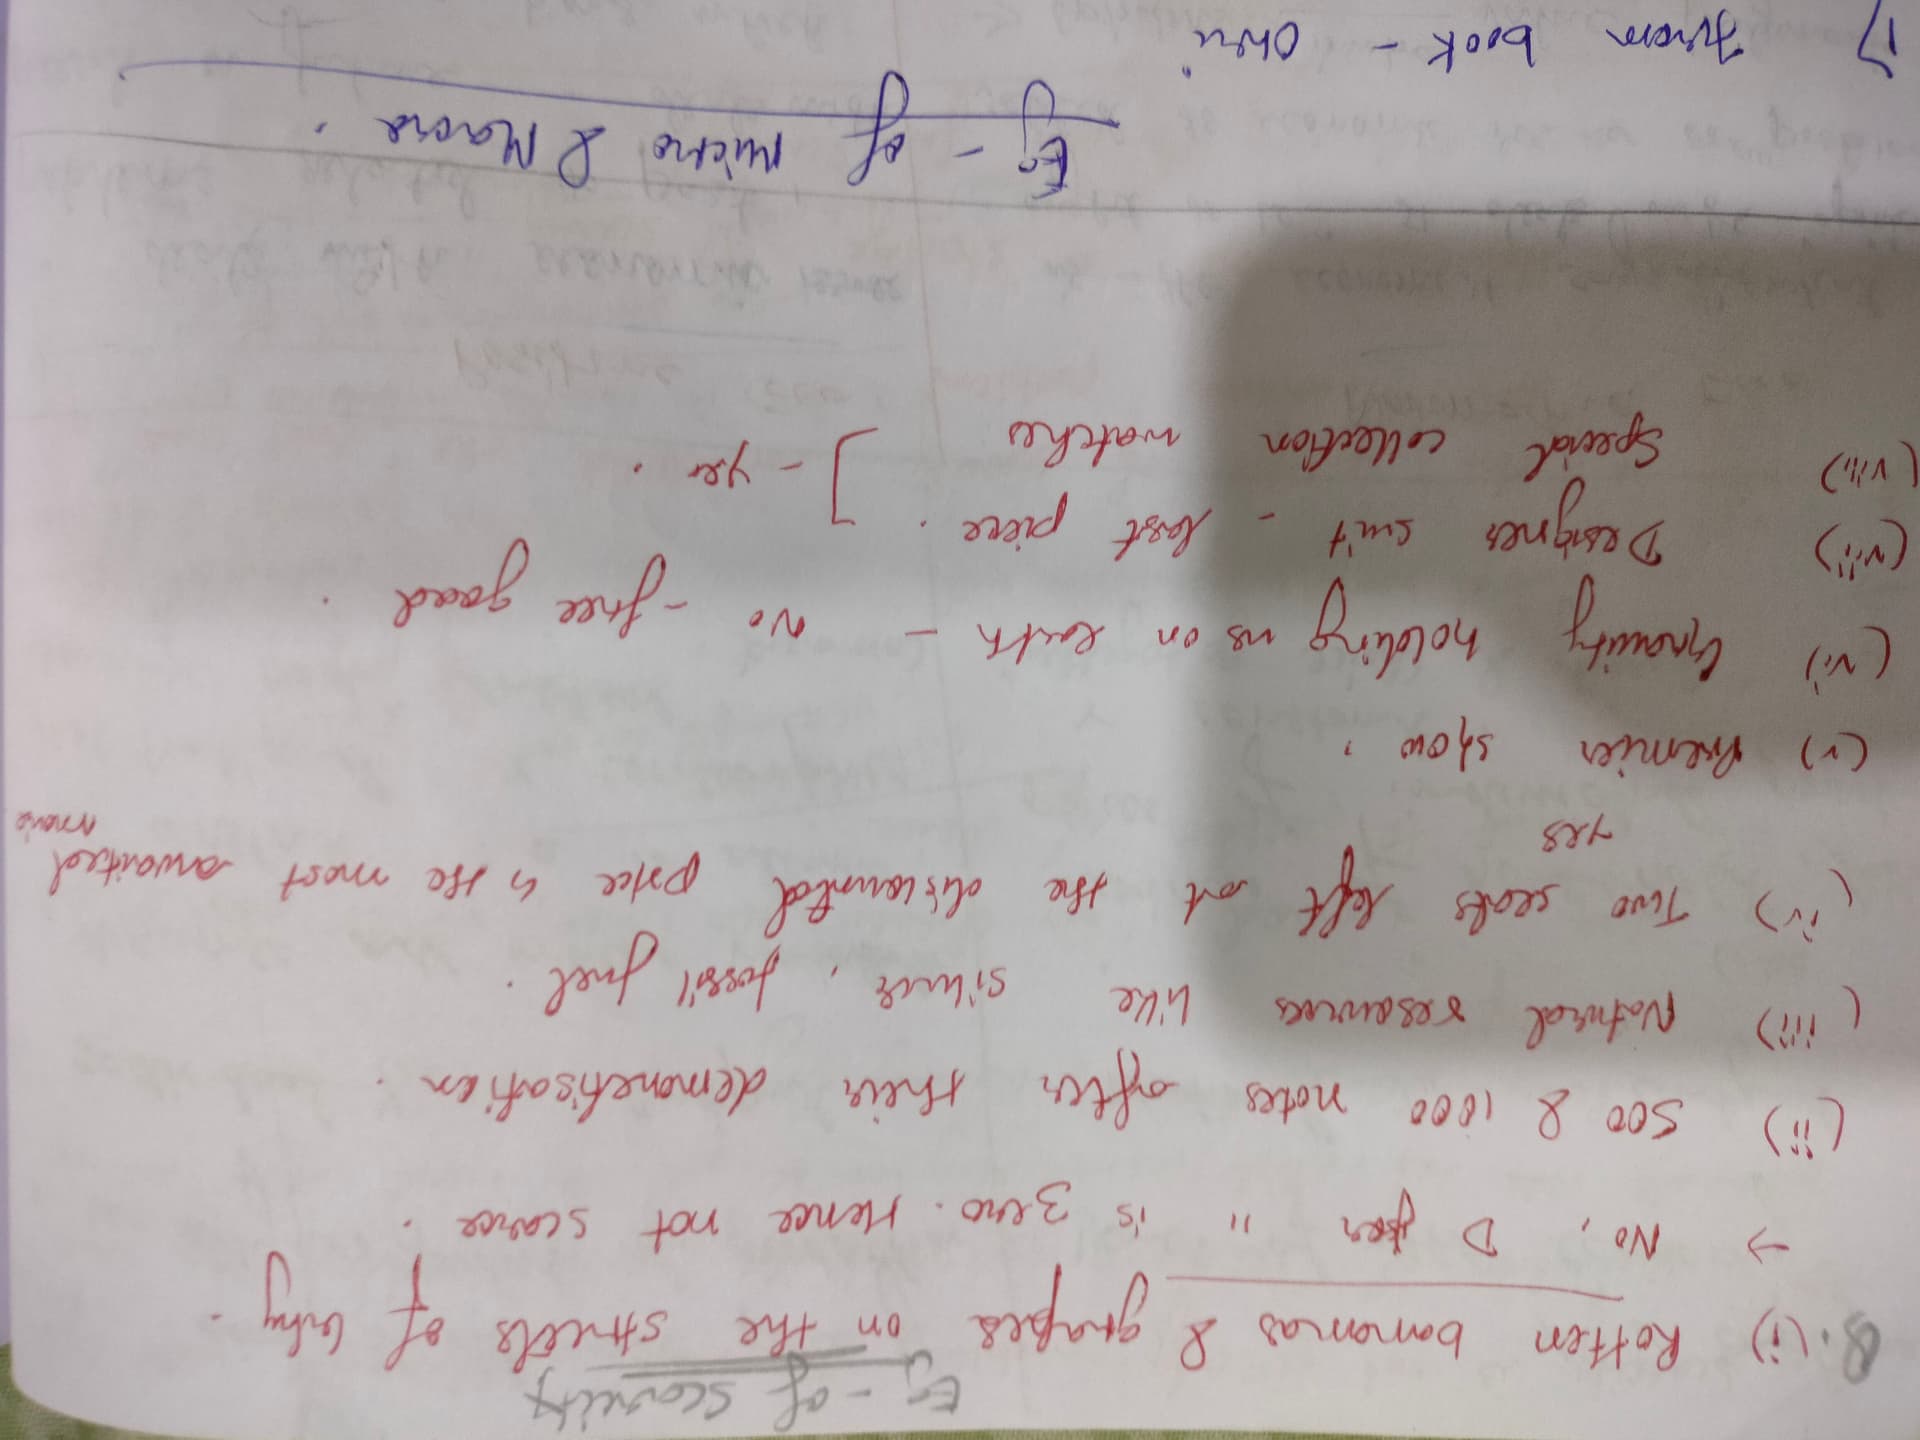 Eg - of scarcity
Q. (i) Rotten bananas & grapes on the streets of
→ No, D for " is zero. Hence not scarce.
(ii) 500 & 1000 notes after their demonetisation.
(iii) Natural resources like silver, fossil fuel.
(iv) Two seats left at the discounted price is the most awaited movie
yes
(v) Premier show.
(vi) Gravity holding us on earth - No - free good.
(vii) Designer suit - last piece.
(viii) Special collection watches ] - yes.
Eg - of Micro & Macro.
1) From book - Oheri